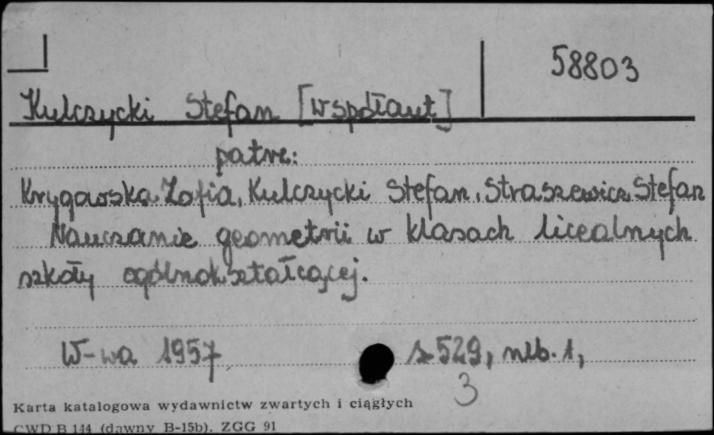 58803
Kulczycki Stefan [współaut]
patrz:
Krygowska Zofia, Kulczycki Stefan, Straszewicz Stefan
Nauczanie geometrii w klasach licealnych
szkoły ogólnokształcącej.
W-wa 1957
s. 529, nlb. 1,
3
Karta katalogowa wydawnictw zwartych i ciągłych
CWD B 144 (dawny B-15b). ZGG 91